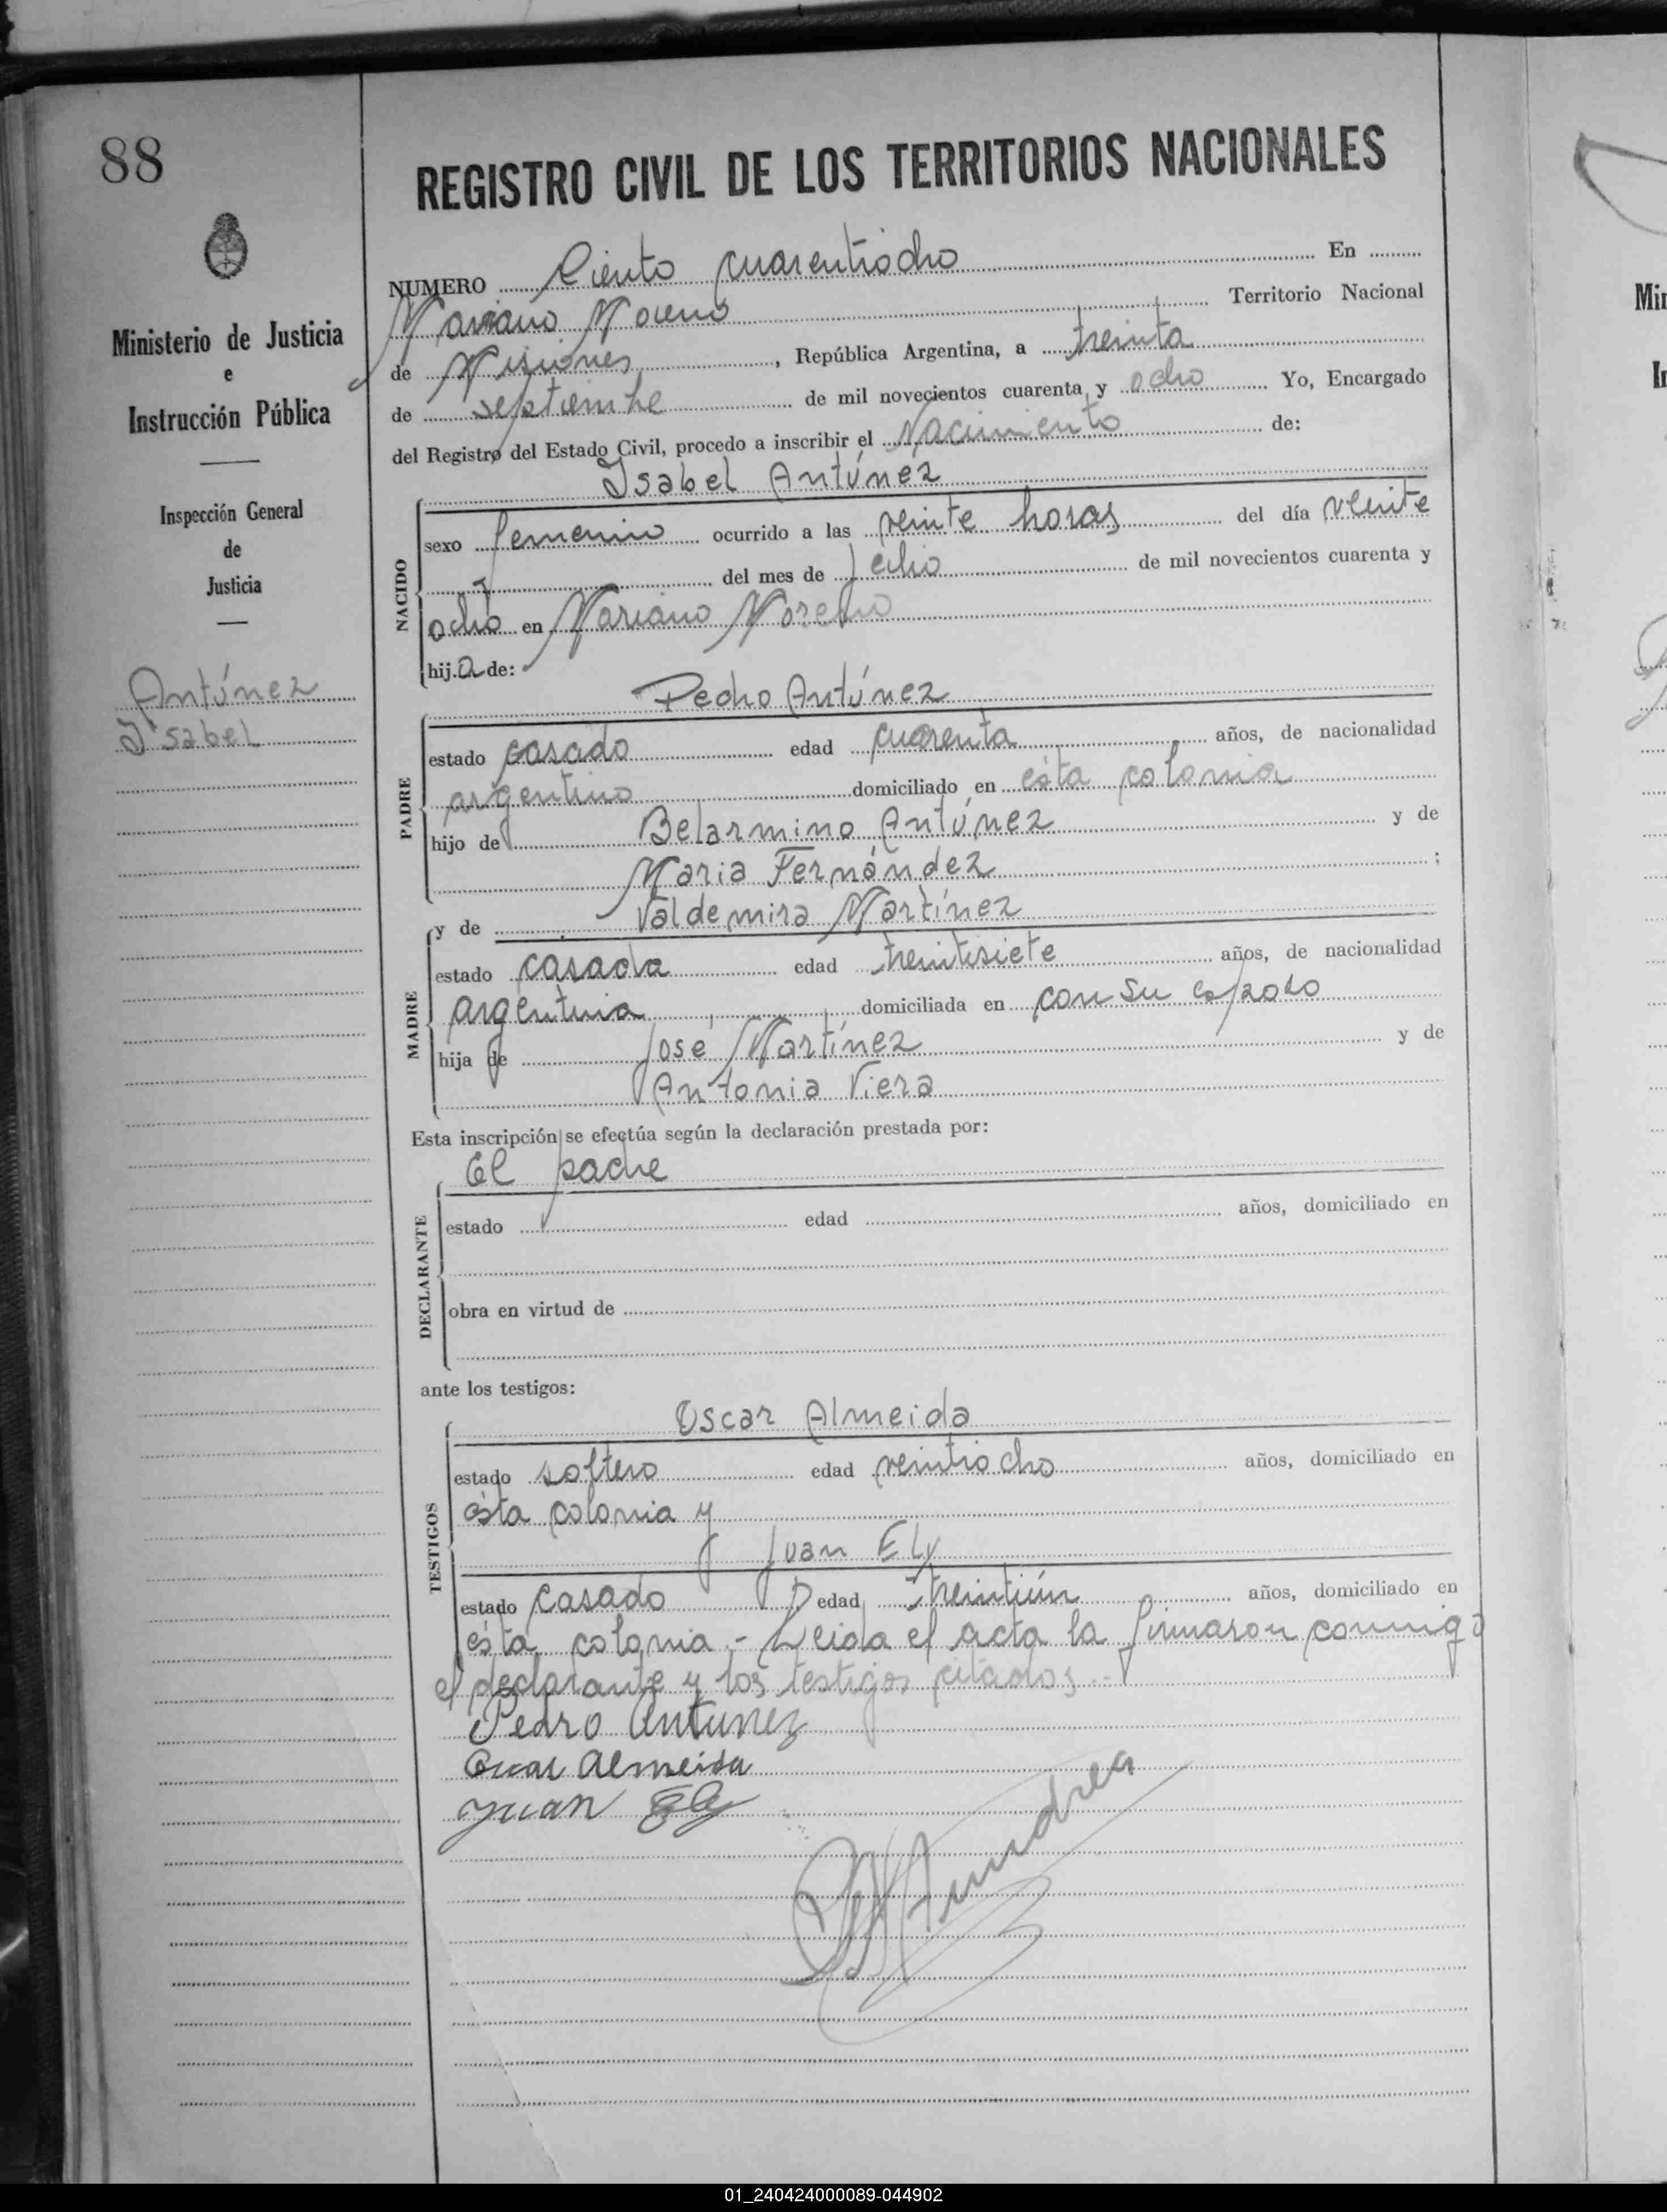 88
Ministerio de Justicia
e
Instrucción Pública
Inspección General
de
Justicia
Antúnez
Isabel
REGISTRO CIVIL DE LOS TERRITORIOS NACIONALES
NUMERO Ciento cuarentiocho En
Mariano Moreno Territorio Nacional
de Misiones, República Argentina, a treinta
de septiembre de mil novecientos cuarenta y ocho Yo, Encargado
del Registro del Estado Civil, procedo a inscribir el Nacimiento de:
Isabel Antúnez
NACIDO
sexo femenino ocurrido a las veinte horas del día veinte
del mes de julio de mil novecientos cuarenta y
ocho en Mariano Moreno
hija de:
Pedro Antúnez
PADRE
estado casado edad cuarenta años, de nacionalidad
argentino domiciliado en ésta colonia
hijo de Belarmino Antúnez y de
Maria Fernández ;
y de Valdemira Martínez
MADRE
estado casada edad treintisiete años, de nacionalidad
argentina domiciliada en con su esposo
hija de José Martínez y de
Antonia Viera
Esta inscripción se efectúa según la declaración prestada por:
El padre
DECLARANTE
estado edad años, domiciliado en
obra en virtud de
ante los testigos:
Oscar Almeida
TESTIGOS
estado soltero edad veintiocho años, domiciliado en
ésta colonia y
Juan Ely
estado casado edad treintiún años, domiciliado en
ésta colonia.- Leida el acta la firmaron conmigo
el declarante y los testigos citados.-
Pedro Antunez
Oscar Almeida
Juan Ely
01_240424000089-044902